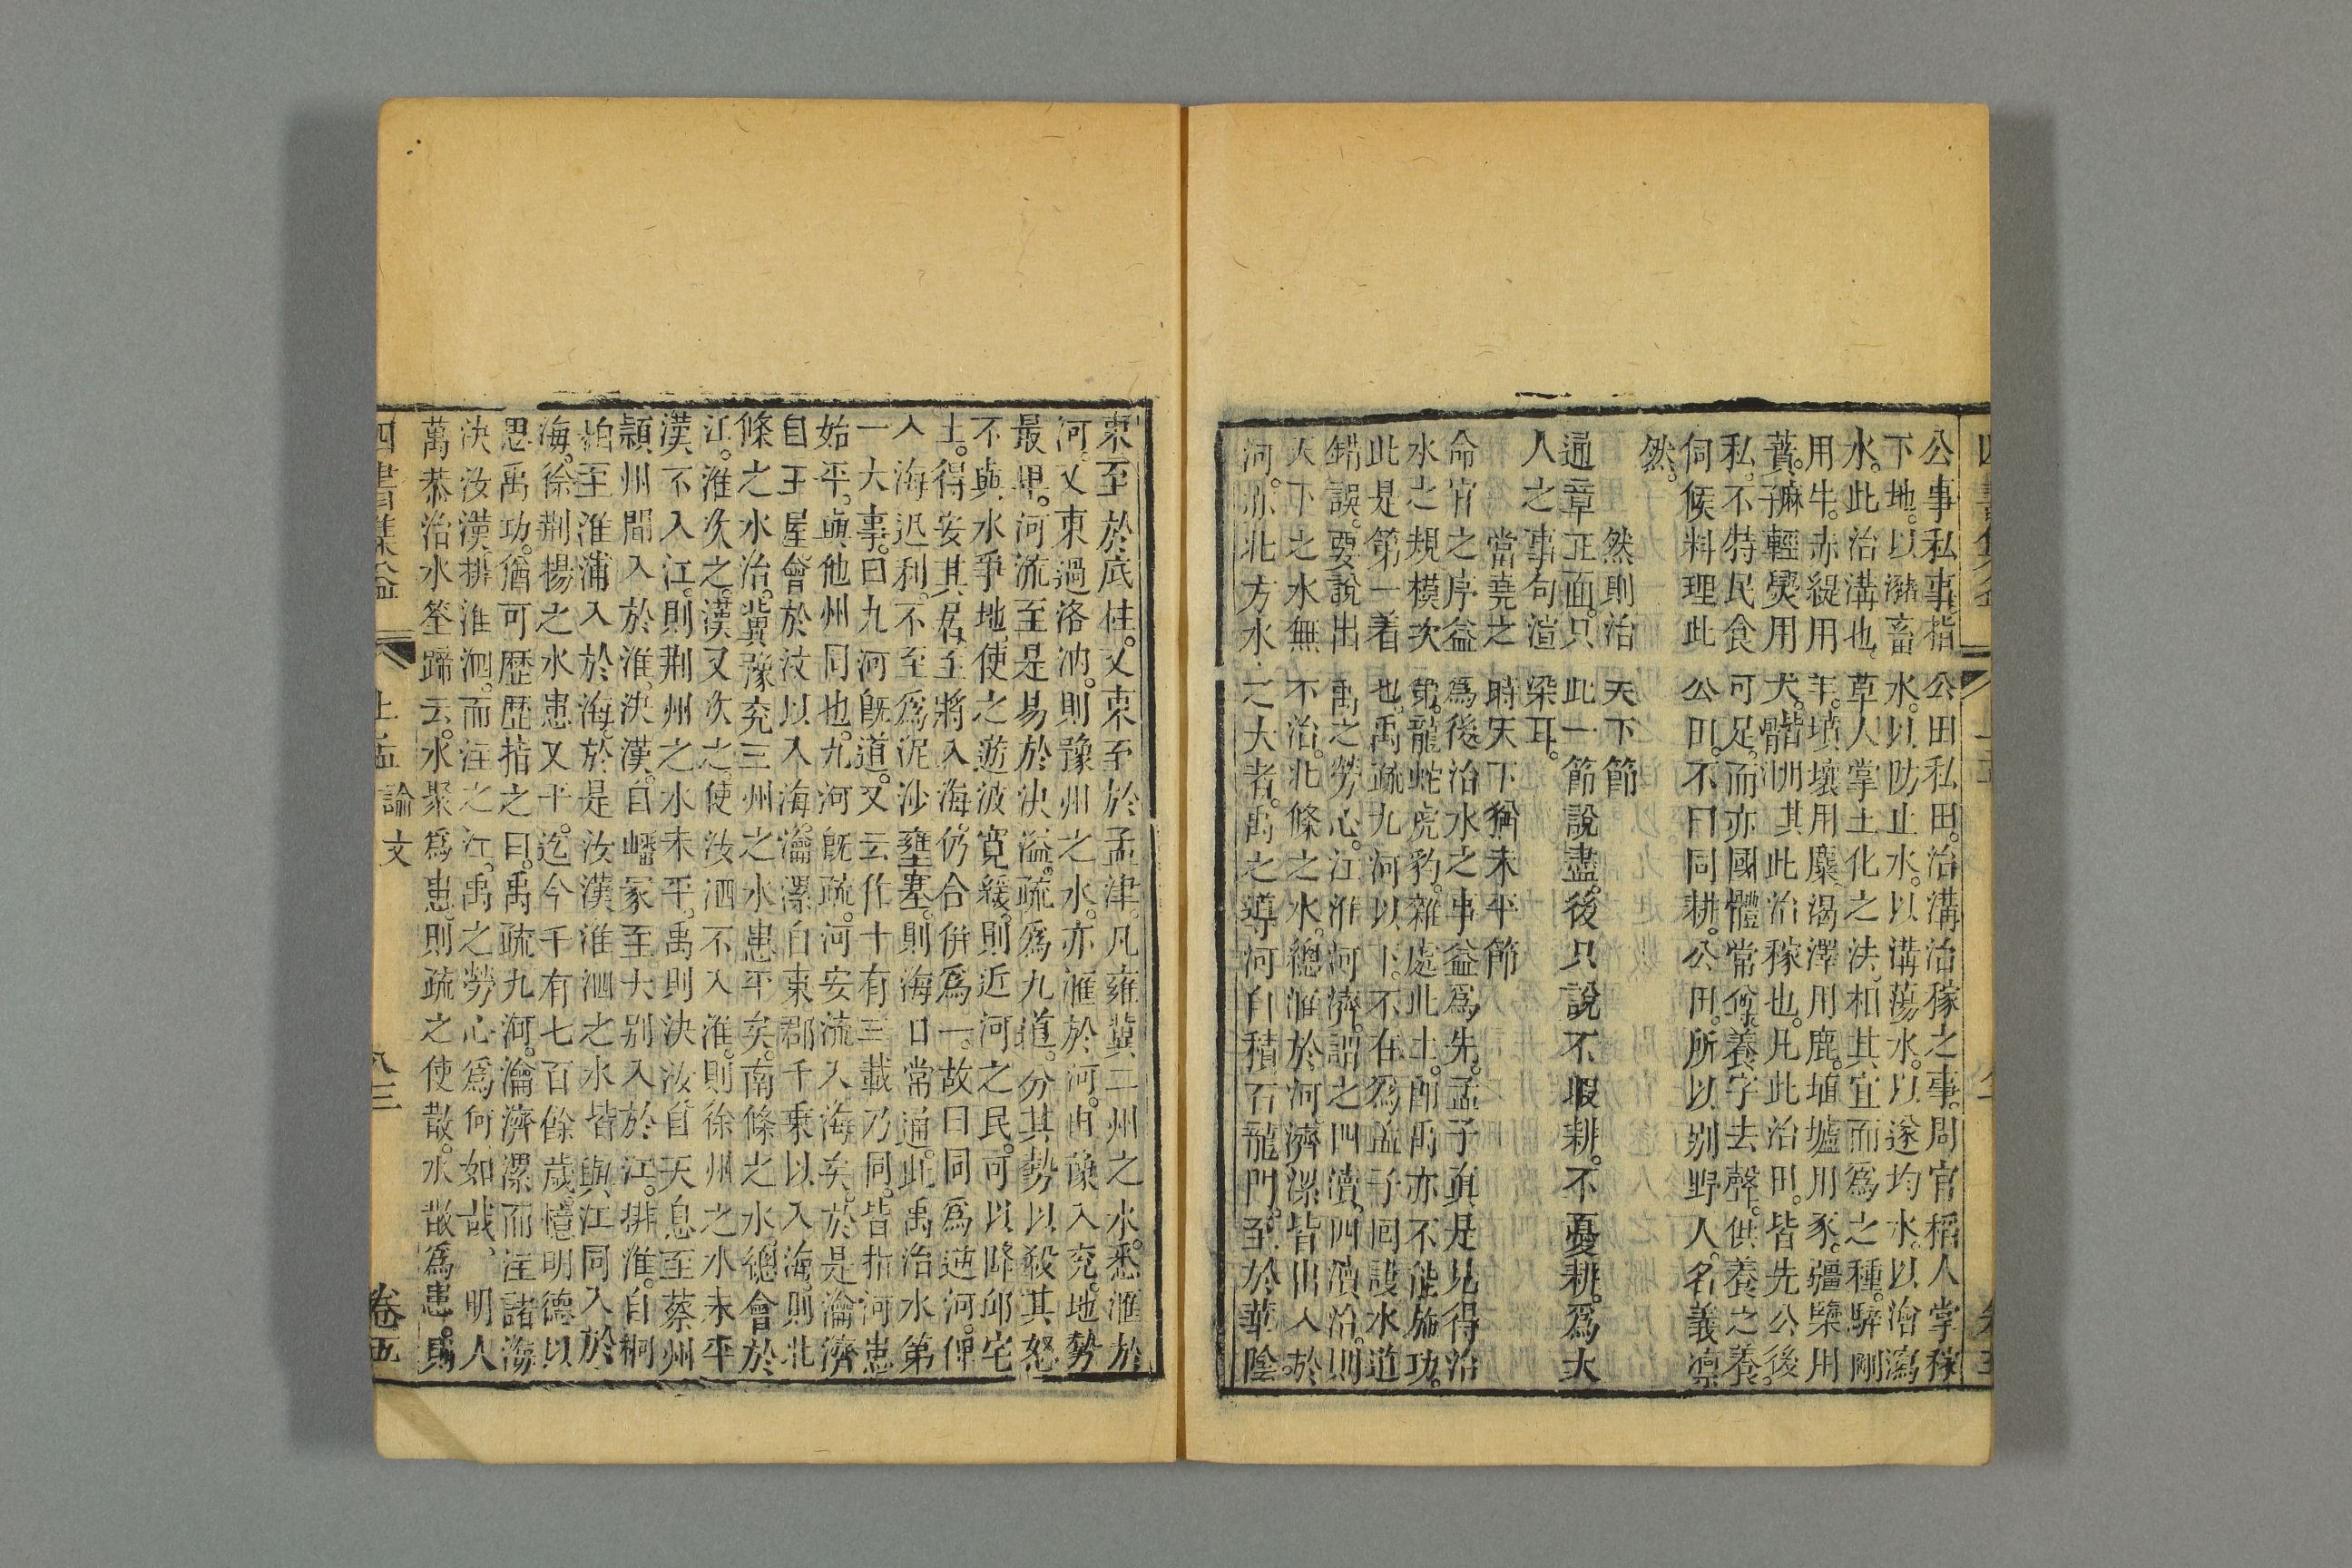 公事私事指公田私田。治溝治稼之事。周官稻人掌稼
下地。以瀦畜水。以防止水。以溝蕩水。以遂均水。以澮瀉
水。此治溝也。草人掌土化之法。相其宜而爲之種。騂剛
用牛。赤緹用羊。墳壤用麋。渴澤用鹿。埴壚用豕。彊㯺用
蕡。輕㷠用犬。此治稼也。凡此治田。皆先公後
私。不特民食可足。而亦國體常餘養字去聲。供養之養。
伺候料理此公田。不曰同耕。公田。所以別野人。名義凛
然。
然則治天下節
通章正面。只此一節說盡。後只說不暇耕。不憂耕。爲大
人之事句渲染耳。
當堯之時天下猶未平節
命官之序。益爲後。治水之事。益爲先。孟子真是見得治
水之規模次第。龍蛇虎豹。雜處此土。卽禹亦不能施功。
此是第一着也。禹疏九河以下。不在爲孟子回護水道
錯誤。要說出禹之勞心。江淮河濟。謂之四瀆。四瀆治。則
天下之水無不治。北條之水。總滙於河。濟漯皆出入於
河。亦北方水之大者。禹之導河。自積石龍門。至於華陰。
東至於底柱。又東至於孟津。凡雍冀二州之水。悉滙於
河。又東過洛汭。則豫州之水。亦滙於河。由豫入兗。地勢
最卑。河流至是。易於決溢。疏爲九道。分其勢以殺其怒
不與水爭地。使之遊波寬緩。則近河之民。可以降邱宅
土。得安其居。至將入海。仍合併爲一。故曰同爲逆河。俾
入海迅利。不至爲泥沙壅塞。則海口常通。此禹治水第
一大事。曰九河旣道。又云作十有三載乃同。皆指河患
始平。與他州同也。九河旣疏。河安流入海矣。於是瀹濟
自王屋會於汶以入海。瀹漯自東郡千乘以入海。則北
條之水治。冀豫兗三州之水患平矣。南條之水。總會於
江。淮次之。漢又次之。使汝泗不入淮。則徐州之水未平
漢不入江。則荆州之水未平。禹則決汝自天息至蔡州
潁州間入於淮。決漢。自嶓冢至大別入於江。排淮。自桐
柏至淮浦入於海。於是汝漢淮泗之水。皆與江同入於
海。徐荆揚之水患又平。迄今千有七百餘歲。憶明德以
思禹功。猶可歷歷指之曰。禹疏九河。瀹濟漯而注諸海
決汝漢。排淮泗。而注之江。禹之勞心爲何如哉、　明人
萬恭治水筌蹄云。水聚爲患。則疏之使散。水散爲患。則
四書集益
上孟　諭文
八三
卷五